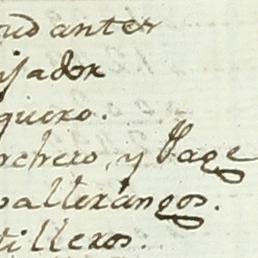 udantes
ijador
quero.
rchero, y Page
ballerangos.
tilleros.